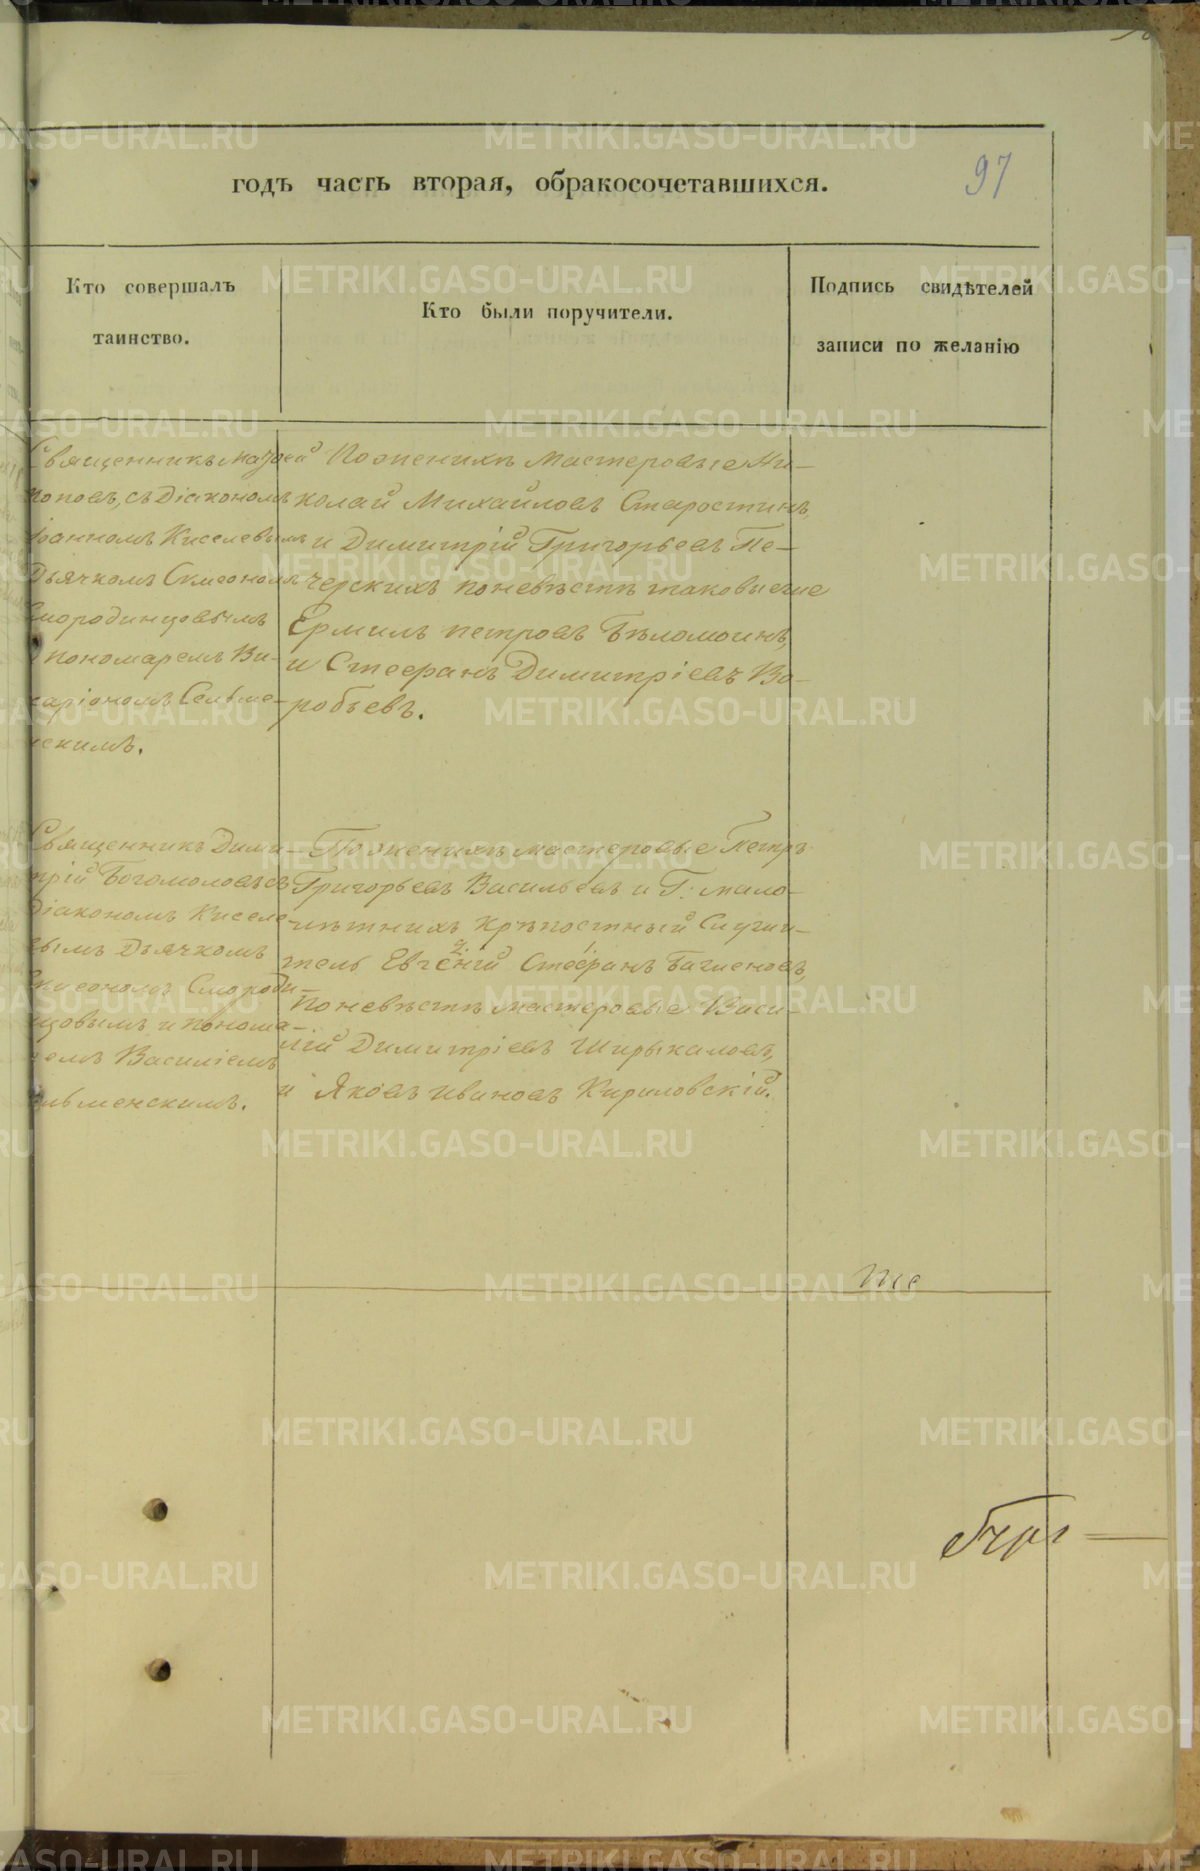 97
годъ часть вторая, обракосочетавшихся.
Кто совершалъ
таинство.
Кто были поручители.
Подпись свидѣтелей
записи по желанію
Священникъ
поповъ, съ Діакономъ
Іоанномъ Киселевымъ
Дьячкомъ Симеономъ
Смородинцовымъ
и пономаремъ Ви-
Сельме-
нскимъ.
Поженихѣ Мастеровые Ни-
колай Михайловъ Старостинъ,
и Димитрій Григорьевъ Пе-
черскихъ поневѣстѣ таковыеже
Ермилъ петровъ Бѣломоинъ,
и Стефанъ Димитріевъ Во-
робьевъ.
Священникъ Дими-
трій Богомоловъ съ
Діакономъ Киселе-
вымъ Дьячкомъ
Симеономъ Смороди-
нцовымъ и понома-
ремъ Василіемъ
Сельменскимъ.
Поженихѣ мастеровые Петръ
Григорьевъ Васильевъ и Г: мало-
лѣтнихъ Крѣпостный Служи-
тель Стефанъ
Поневѣстѣ мастеровые Васи-
лій Димитріевъ Ширыкаловъ,
и Яковъ Ивановъ Кириловскій.
METRIKI.GASO-URAL.RU